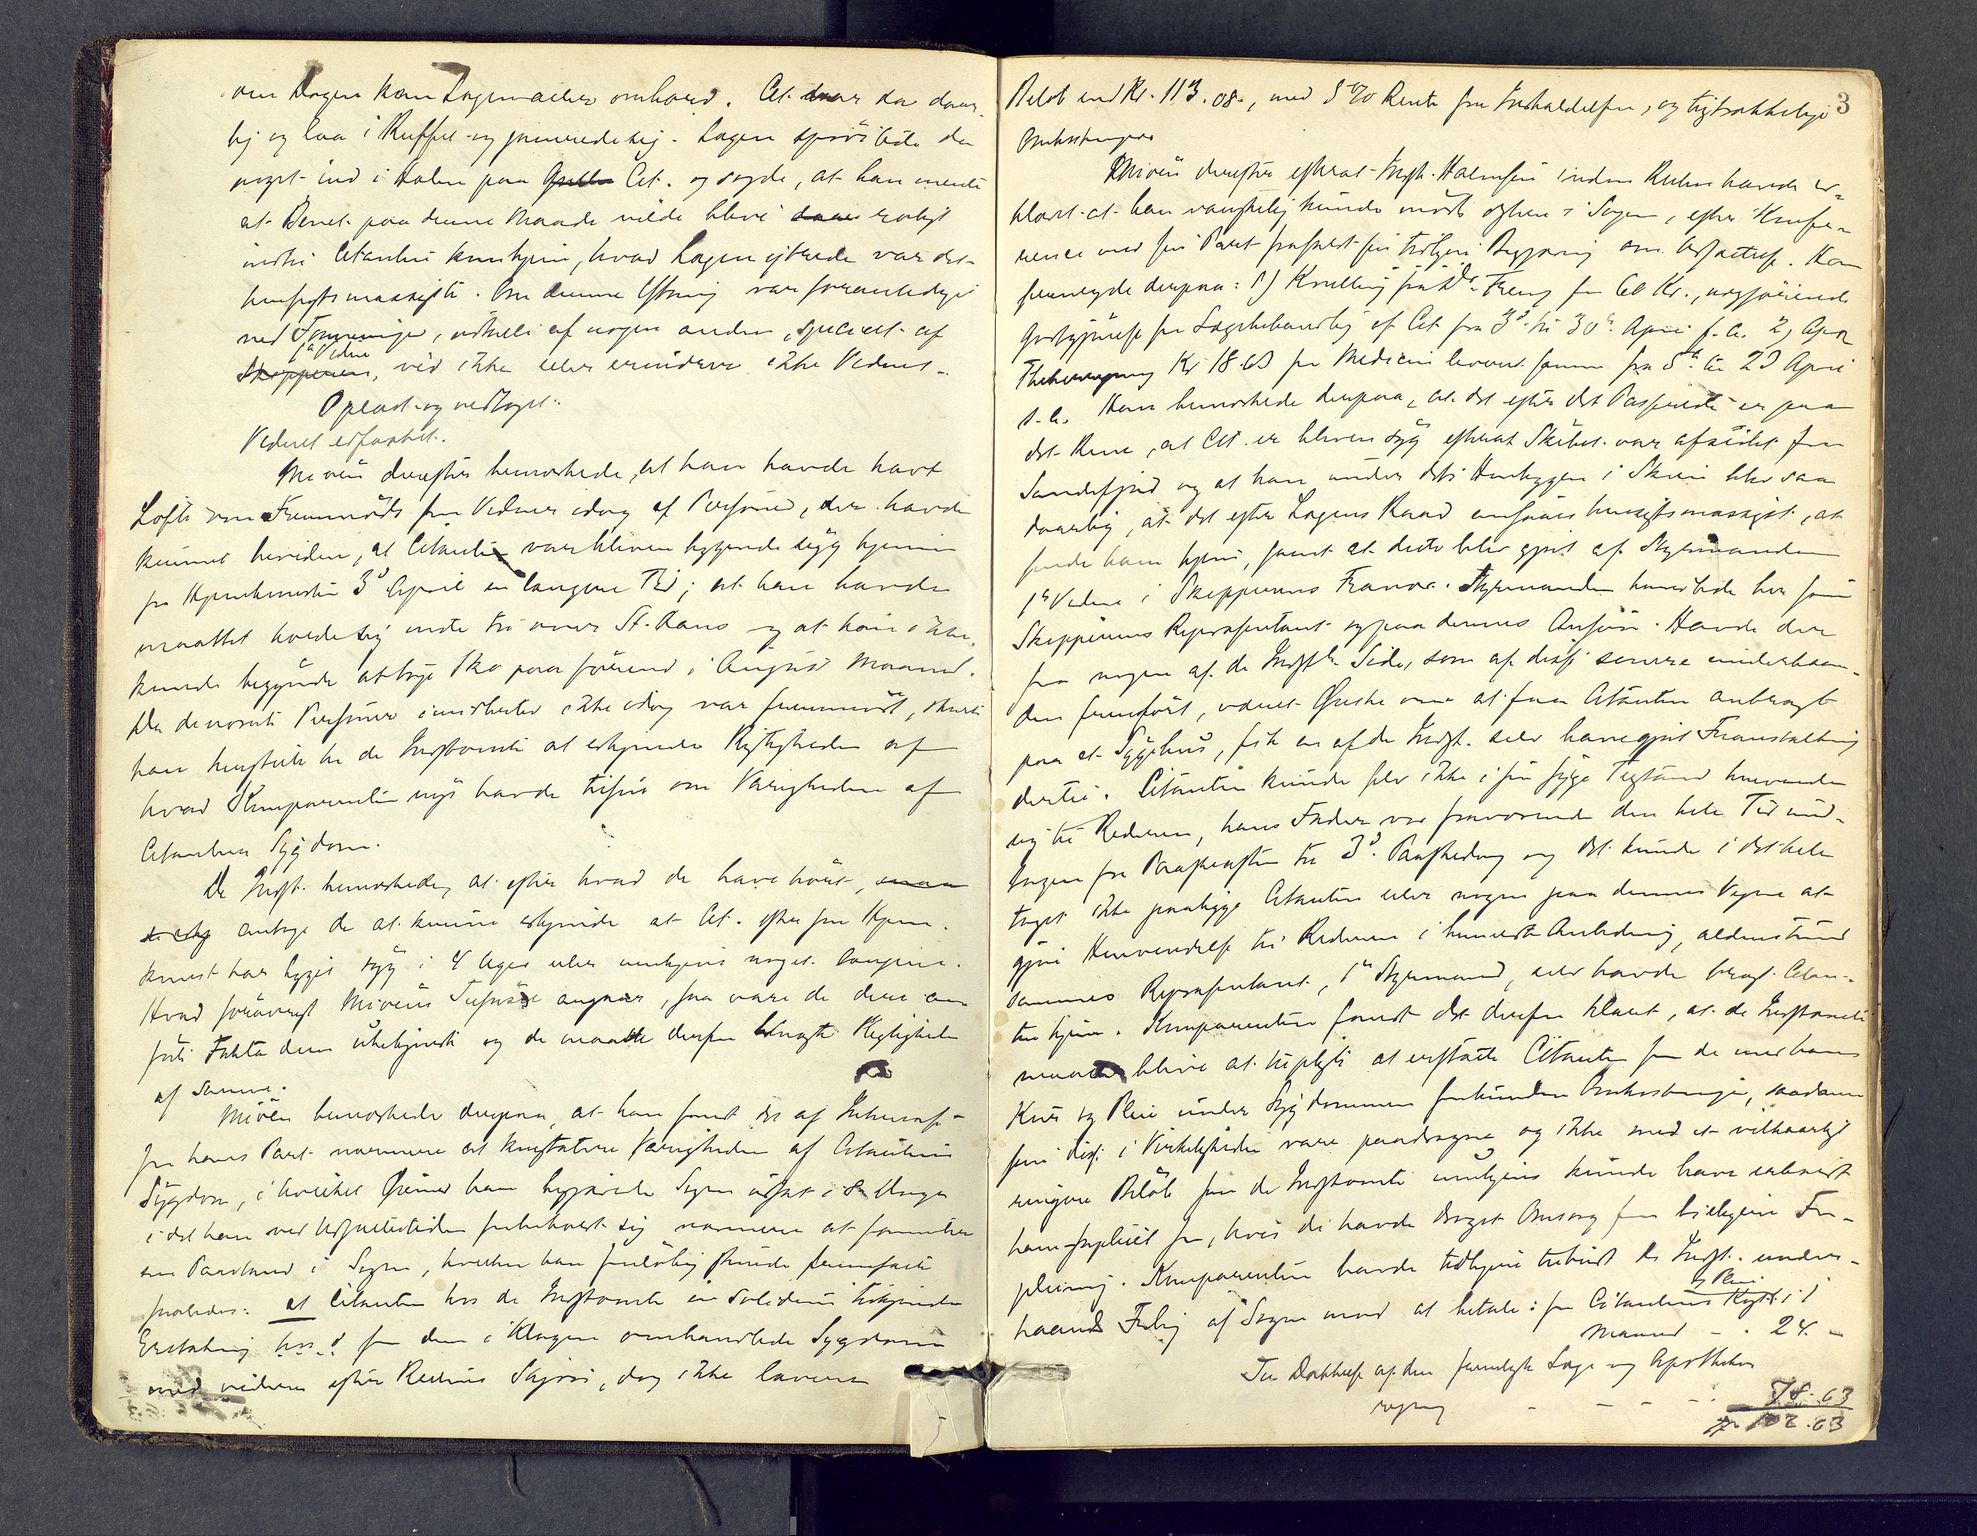 om Dagen kom Lægen atter ombord. Cit. var da daar-
lig og laa i Ruffet og jamrede sig. Lægen sprøitede da
noget ind i Halen paa Cit. og sagde, at han mente
at Benet paa denne Maade vilde blive roligt
indtil Citanten kom hjem, hvad Lægen ytrede var det
hensigtsmæssigste. Om denne Ytring var foranlediget
ved Foreninger, udtalt af nogen anden, specielt af
Skipperen, ved ikke eller erindrer ikke Vidnet.
1ste Vidne
Oplæst og vedtaget.
Vidnet erfarket.
Miøen derefter bemærkede, at han havde havt
Løfte om Fremmøde for Vidner idag af Personer, der havde
kunnet bevidne, at Citanten var bleven liggende syg hjemme
fra Hjemkomsten 3d April en længere Tid; at han havde
maattet holde sig inde til over St. Hans og at han ikke
kunde begynde at tage Sko paa førend i August Maaned.
Da de nævnte Personer imidlertid ikke idag var fremmødt, skulle
han henstille til de Indstevnte at erkjende Rigtigheden af
hvad Komparenten nys havde tilført om Varigheden af
Citantens Sygdom.
De Indst. bemærkede, at efter hvad de have hørt,
antage de at kunne erkjende at Cit. efter sin Hjem-
komst har ligget syg i 4 Uger eller muligens noget længere.
Hvad forøvrigt Miøens Tilførsel angaar, saa vare de deri an-
førte Fakta dem ubekjendt og de maatte derfor benægte Rigtigheden
af samme.
Miøen bemærkede derpaa, at han fandt det af Interesse
for hans Part nærmere at konstatere Varigheden af Citantens
Sygdom, i hvilket Øiemed han begjærede Sagen udsat i 8 Dage
idet han ved Udsættelsestiden forbeholdt sig nærmere at formulere
sin Paastand i Sagen, hvilken han foreløbig skulde fremsætte
saaledes: at Citanten hos de Indstevnte in solidum tilkjendes
Erstatning for den i Klagen omhandlede Sygdom
med videre efter Rettens Skjøn, dog ikke lavere
3
Beløb end Kr. 113.08., med 5 % Rente fra Indkaldelsen, og tilstrækkelige
Omkostninger
Miøen derefter efterat Indst. Halvorsen inden Retten havde er-
klært at han vanskelig kunde møde oftere i Sagen, efter Konfe-
rence med sin Part frafaldt sin tidligere Begjæring om Udsættelse. Han
fremlagde derpaa: 1) Kvittering fra Dr. Freng for 60 Kr., utgjørende
Godtgjørelse for Lægebehandling af Cit. fra 3d til 30te April s. A. 2) Apo-
thekerregning Kr 18.63 for Medicin leveret samme fra 5te til 23 April
s. A. Han bemærkede derpaa, at det efter det Passerede er paa
det Rene, at Cit. er bleven syg efterat Skibet var afseilet fra
Sandefjord og at han under dets Henliggen i Skien blev saa
daarlig, at det efter Lægens Raad ansaaes hensigtsmæssigst, at
sende ham hjem, samt at dette blev gjort af Styrmanden
1ste Vidne i Skipperens Fravær. Styrmanden handlede her som
Skipperens Repræsentant og paa dennes Ansvar. Havde der
fra nogen af de Indstvtes Side, som af disse senere underhaan-
den fremført, været Ønske om at faa Citanten anbragt
paa et Sygehus, fik en af de Indst. selv have gjort Foranstaltning
dertil. Citanten kunde selv ikke i sin syge Tilstand henvende
sig til Rederen, hans Fader var fraværende den hele Tid und-
tagen fra Paaskeaften til 3d Paaskedag og det kunde i det hele
taget ikke paaligge Citanten eller nogen paa dennes Vegne at
gjøre Henvendelse til Rederne i berørte Anledning, aldenstund
sammes Repræsentant, 1ste Styrmand, selv havde bragt Citan-
ten hjem. Komparenten fandt det derfor klart, at de Indstævnte
maatte blive at tilpligte at erstatte Citanten for de med hans
Kur og Pleie under Sygdommen forbundne Omkostninger, saadanne
som disse i Virkeligheden vare paadragne og ikke med et vilkaarligt
ringere Beløb som de Indstævnte muligens kunde have erhvervet
ham forpleiet for, hvis de havde draget Omsorg for billigere For-
pleining. Komparenten havde tidligere tilbudt de Indst. under-
haands Forlig af Sagen mod at betale: for Citantens Kost i 1
og Pleie
Maaned - - 24. -
Til Dækkelse af den fremlagte Læge og Apotheker
regning - - - - 78.63
Kr 102.63